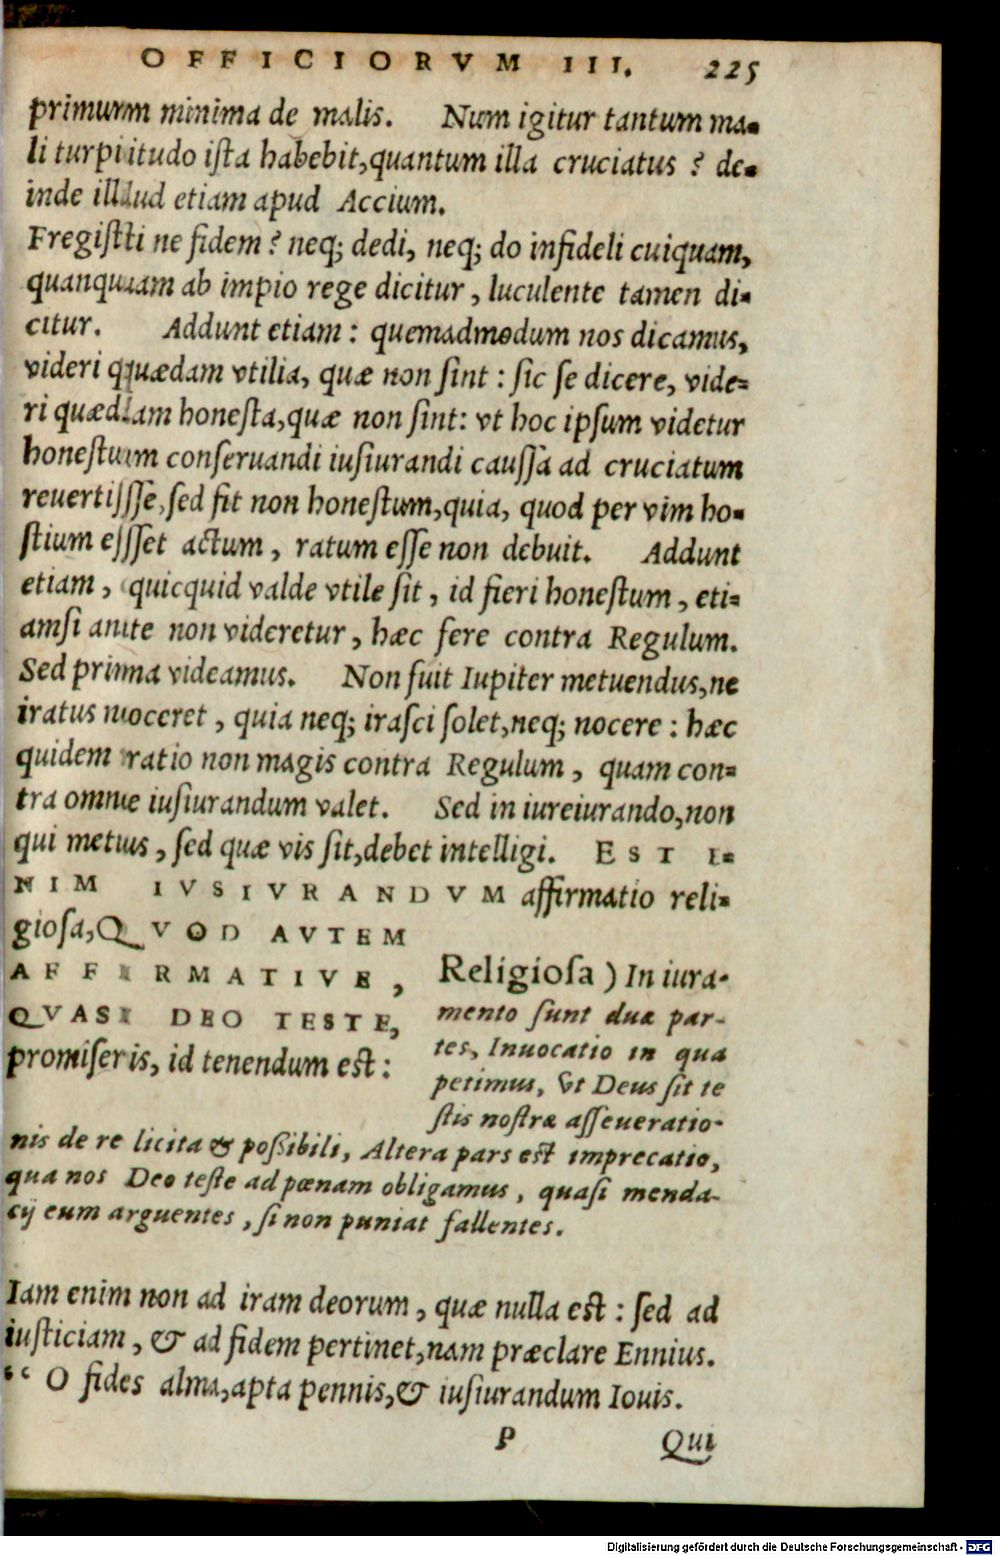 OFFICIORVM III. 225
primum minima de malis. Num igitur tantum ma-
li turpitudo iſta habebit, quantum illa cruciatus ? de-
inde illud etiam apud Accium.
Fregiſti ne fidem ? neq; dedi, neq; do infideli cuiquam,
quanquam ab impio rege dicitur, luculente tamen di-
citur. Addunt etiam : quemadmodum nos dicamus,
videri quædam vtilia, quæ non ſint : ſic ſe dicere, vide-
ri quædam honeſta, quæ non ſint: vt hoc ipſum videtur
honeſtum conſeruandi iuſiurandi cauſſa ad cruciatum
reuertiſſe, ſed fit non honeſtum, quia, quod per vim ho-
ſtium eſſet actum, ratum eſſe non debuit. Addunt
etiam, quicquid valde vtile ſit, id fieri honeſtum, eti-
amſi ante non videretur, hæc fere contra Regulum.
Sed prima videamus. Non fuit Iupiter metuendus, ne
iratus noceret, quia neq; iraſci ſolet, neq; nocere : hæc
quidem ratio non magis contra Regulum, quam con-
tra omne iuſiurandum valet. Sed in iureiurando, non
qui metus, ſed quæ vis ſit, debet intelligi. EST E-
NIM IVSIVRANDVM affirmatio reli-
gioſa, QVOD AVTEM
AFFIRMATIVE,
QVASI DEO TESTE,
promiſeris, id tenendum est :
Religioſa ) In iura-
mento ſunt duæ par-
tes, Inuocatio in qua
petimus, vt Deus ſit te
ſtis noſtræ aſſeueratio-
nis de re licita & poßibili, Altera pars est imprecatio,
qua nos Deo teſte ad pœnam obligamus, quaſi menda-
cij eum arguentes, ſi non puniat fallentes.
Iam enim non ad iram deorum, quæ nulla est : ſed ad
iuſticiam, & ad fidem pertinet, nam præclare Ennius.
“ O fides alma, apta pennis, & iuſiurandum Iouis.
P Qui
Digitalisierung gefördert durch die Deutsche Forschungsgemeinschaft - DFG